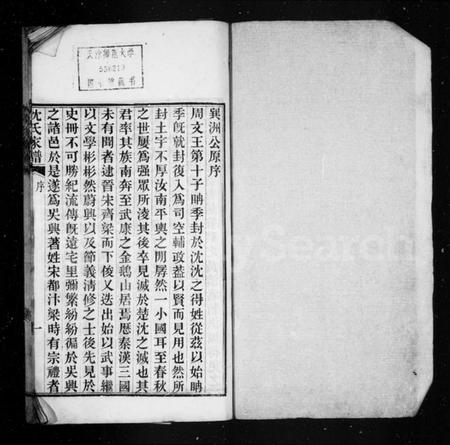 巽洲公原序
周文王第十子聃季封於沈沈之得姓從茲以始聃
季旣就封復入為司空輔政蓋以賢而見用也然所
封土宇不厚汝南平輿之閒孱然一小國耳至春秋
之世屢為强眾所淩其後幸見滅於楚沈之滅也其
君率其族南奔至武康之金鵝山居焉厯秦漢三國
未有聞者逮晉宋齊梁而下俊乂迭出始以武事繼
以文學彬彬然蔚興以及節義清修之士後先見於
史冊不可勝紀流傳旣遠宅里彌繁紛紛徧於吳興
之諸邑於是遂為吳興著姓宋都汴梁時有宗禮者
沈氏家譜
序
一
536219
Search